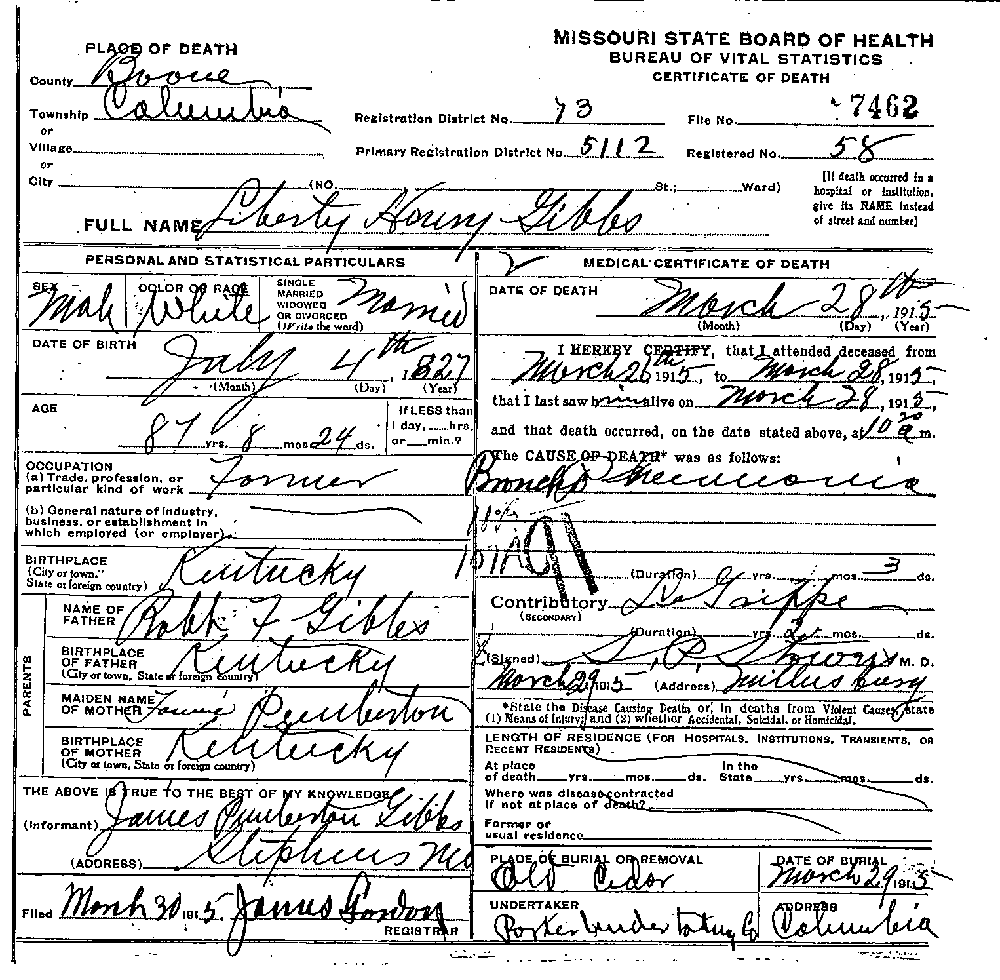 MISSOURI STATE BOARD OF HEALTH
BUREAU OF VITAL STATISTICS
CERTIFICATE OF DEATH
PLACE OF DEATH
County Boone
Township Columbia
or
Village
or
City (NO. St.; Ward)
Registration District No. 73 File No. 7462
Primary Registration District No. 5112 Registered No. 58
[If death occurred in a
hospital or institution,
give its NAME instead
of street and number]
FULL NAME Liberty Henry Gibbs
PERSONAL AND STATISTICAL PARTICULARS
SEX Male
COLOR OR RACE White
SINGLE
MARRIED
WIDOWED
OR DIVORCED
(Write the word) Married
DATE OF BIRTH
July 4th, 1827
(Month) (Day) (Year)
AGE
87 yrs. 8 mos. 24 ds.
If LESS than
1 day, hrs.
or min.?
OCCUPATION
(a) Trade, profession, or
particular kind of work Farmer
(b) General nature of industry,
business, or establishment in
which employed (or employer)
BIRTHPLACE
(City or town,
State or foreign country) Kentucky
PARENTS
NAME OF
FATHER Robt F Gibbs
BIRTHPLACE
OF FATHER
(City or town, State or foreign country) Kentucky
MAIDEN NAME
OF MOTHER Pemberton
BIRTHPLACE
OF MOTHER
(City or town, State or foreign country) Kentucky
THE ABOVE IS TRUE TO THE BEST OF MY KNOWLEDGE
(Informant) James Pemberton Gibbs
(ADDRESS) Stephens Mo
Filed March 30 1915. James Gordon
REGISTRAR
MEDICAL CERTIFICATE OF DEATH
DATE OF DEATH
March 28th, 1915
(Month) (Day) (Year)
I HEREBY CERTIFY, that I attended deceased from
March 26th 1915, to March 28, 1915,
that I last saw him alive on March 28, 1915,
and that death occurred, on the date stated above, at 10 20 a m.
The CAUSE OF DEATH* was as follows:
Broncho Pneumonia
91
(Duration) yrs. mos. 3 ds.
Contributory La Grippe
(SECONDARY)
(Duration) yrs. 2 mos. ds.
(Signed) S. P. M. D.
March 29, 1915 (Address) Millersburg
*State the Disease Causing Death, or, in deaths from Violent Causes, state
(1) Means of Injury; and (2) whether Accidental, Suicidal, or Homicidal.
LENGTH OF RESIDENCE (FOR HOSPITALS, INSTITUTIONS, TRANSIENTS, OR
RECENT RESIDENTS)
At place
of death yrs. mos. ds.
In the
State yrs. mos. ds.
Where was disease contracted
if not at place of death?
Former or
usual residence
PLACE OF BURIAL OR REMOVAL
Old Cedar
DATE OF BURIAL
March 29, 1915
UNDERTAKER
Parker Undertaking Co
ADDRESS
Columbia